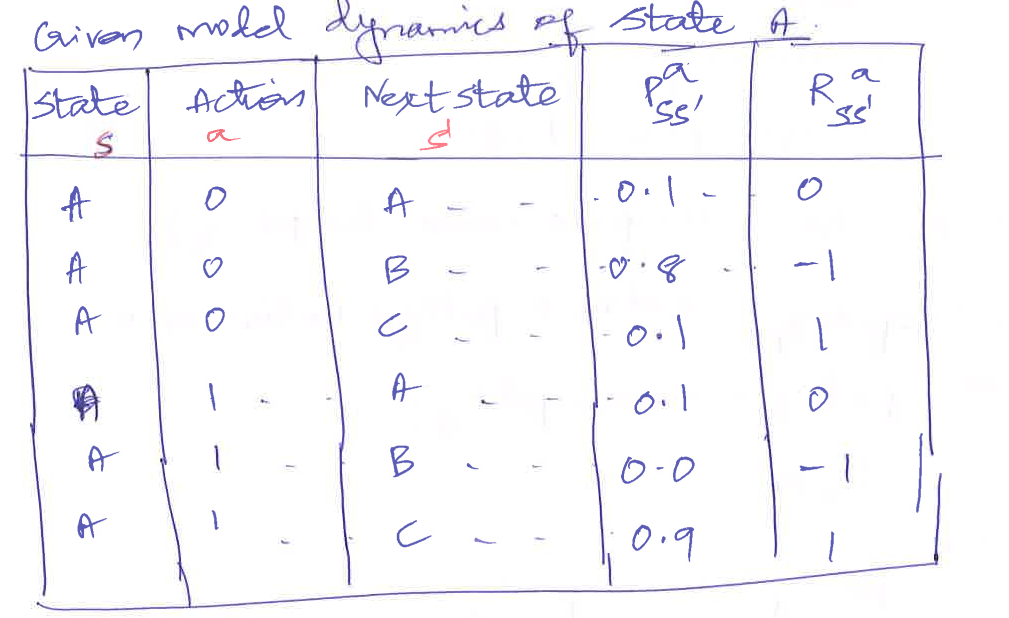 Given model dynamics of State A.
State Action Next state P^a_ss' R^a_ss'
s a s'
A 0 A - - 0.1 - 0
A 0 B - - 0.8 - -1
A 0 C - - 0.1 1
A 1 - - A - - 0.1 0
A 1 - B - - 0.0 -1
A 1 - - C - - 0.9 1